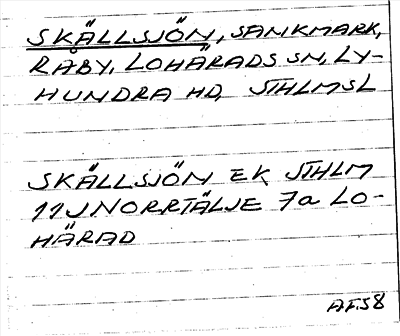 SKÄLLSJÖN, SANKMARK,
RÅBY, LOHÄRADS SN, LY-
HUNDRA HD, STHLMSL
SKÄLLSJÖN EK STHLM
11J NORRTÄLJE 7a LO-
HÄRAD
AFS8